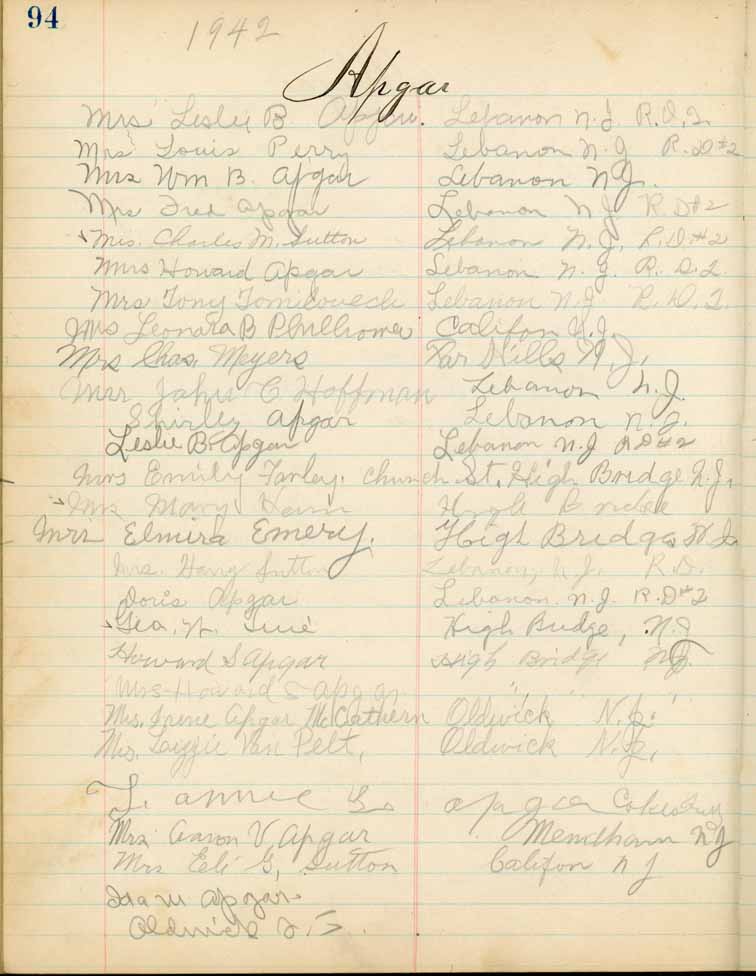 94
1942
Apgar
Mrs Leslie B Apgar. Lebanon N.J. R.D.2.
Mrs Louis Perry Lebanon N.J R.D#2
Mrs Wm B. Apgar Lebanon N.J.
Mrs Fred Apgar Lebanon N J R D#2
Mrs. Charles M. Sutton Lebanon N.J. R.D.#2
Mrs Howard Apgar Lebanon N.J. R.D.2.
Mrs Tony Lebanon N.J R.D.2.
Mrs Leonara B Philhower Califon N.J.
Mrs Chas. Meyers Far Hills N.J.
Mrs John C Hoffman Lebanon N.J.
Shirley Apgar Lebanon N.J.
Leslie B. Apgar Lebanon N.J R D#2
Mrs Emily Farley. Church St. High Bridge N.J.
Mrs Mary High Bridge
Mrs Elmira Emery. High Bridge N.J.
Mrs. Harry Sutton Lebanon, N.J. R.D.
Doris Apgar Lebanon. N.J. R.D#2
Geo. High Bridge, N.J
Howard S Apgar High Bridge N.J.
Mrs Howard S Apgar " " "
Mrs. Irene Apgar McCathern Oldwick N.J.
Mrs. Lizzie Van Pelt, Oldwick N.J.
Annie Apgar
Mrs Aaron V Apgar Mendham NJ
Mrs Eli G. Sutton Califon N J
Apgar
Oldwick